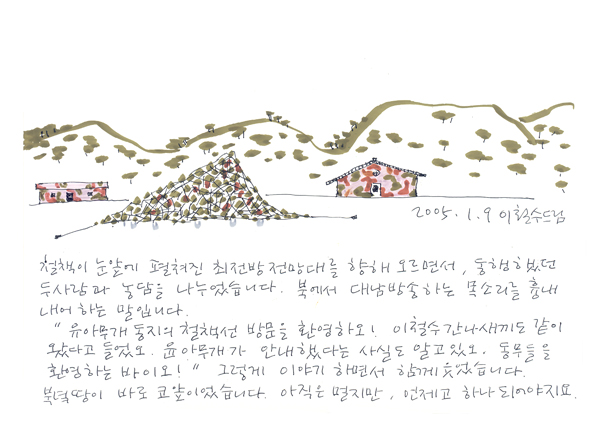 2005.1.9 이철수드림
철책이 눈앞에 펼쳐진 최전방전망대를 향해 오르면서, 동행했던
두사람과 농담을 나누었습니다. 북에서 대남방송하는 목소리를 흉내
내어 하는 말입니다.
" 유아무개 동지의 철책선 방문을 환영하오! 이철수간나새끼도 같이
왔다고 들었오. 윤아무개가 안내했다는 사실도 알고있오. 동무들을
환영하는 바이오! " 그렇게 이야기 하면서 함께 웃었습니다.
북녘땅이 바로 코앞이었습니다. 아직은 멀지만, 언제고 하나되어야지요.